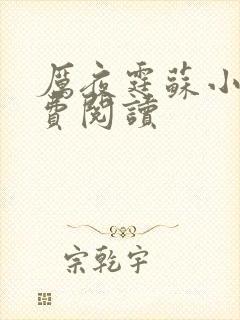 厲夜霆蘇小
費閱讀
宗乾宇